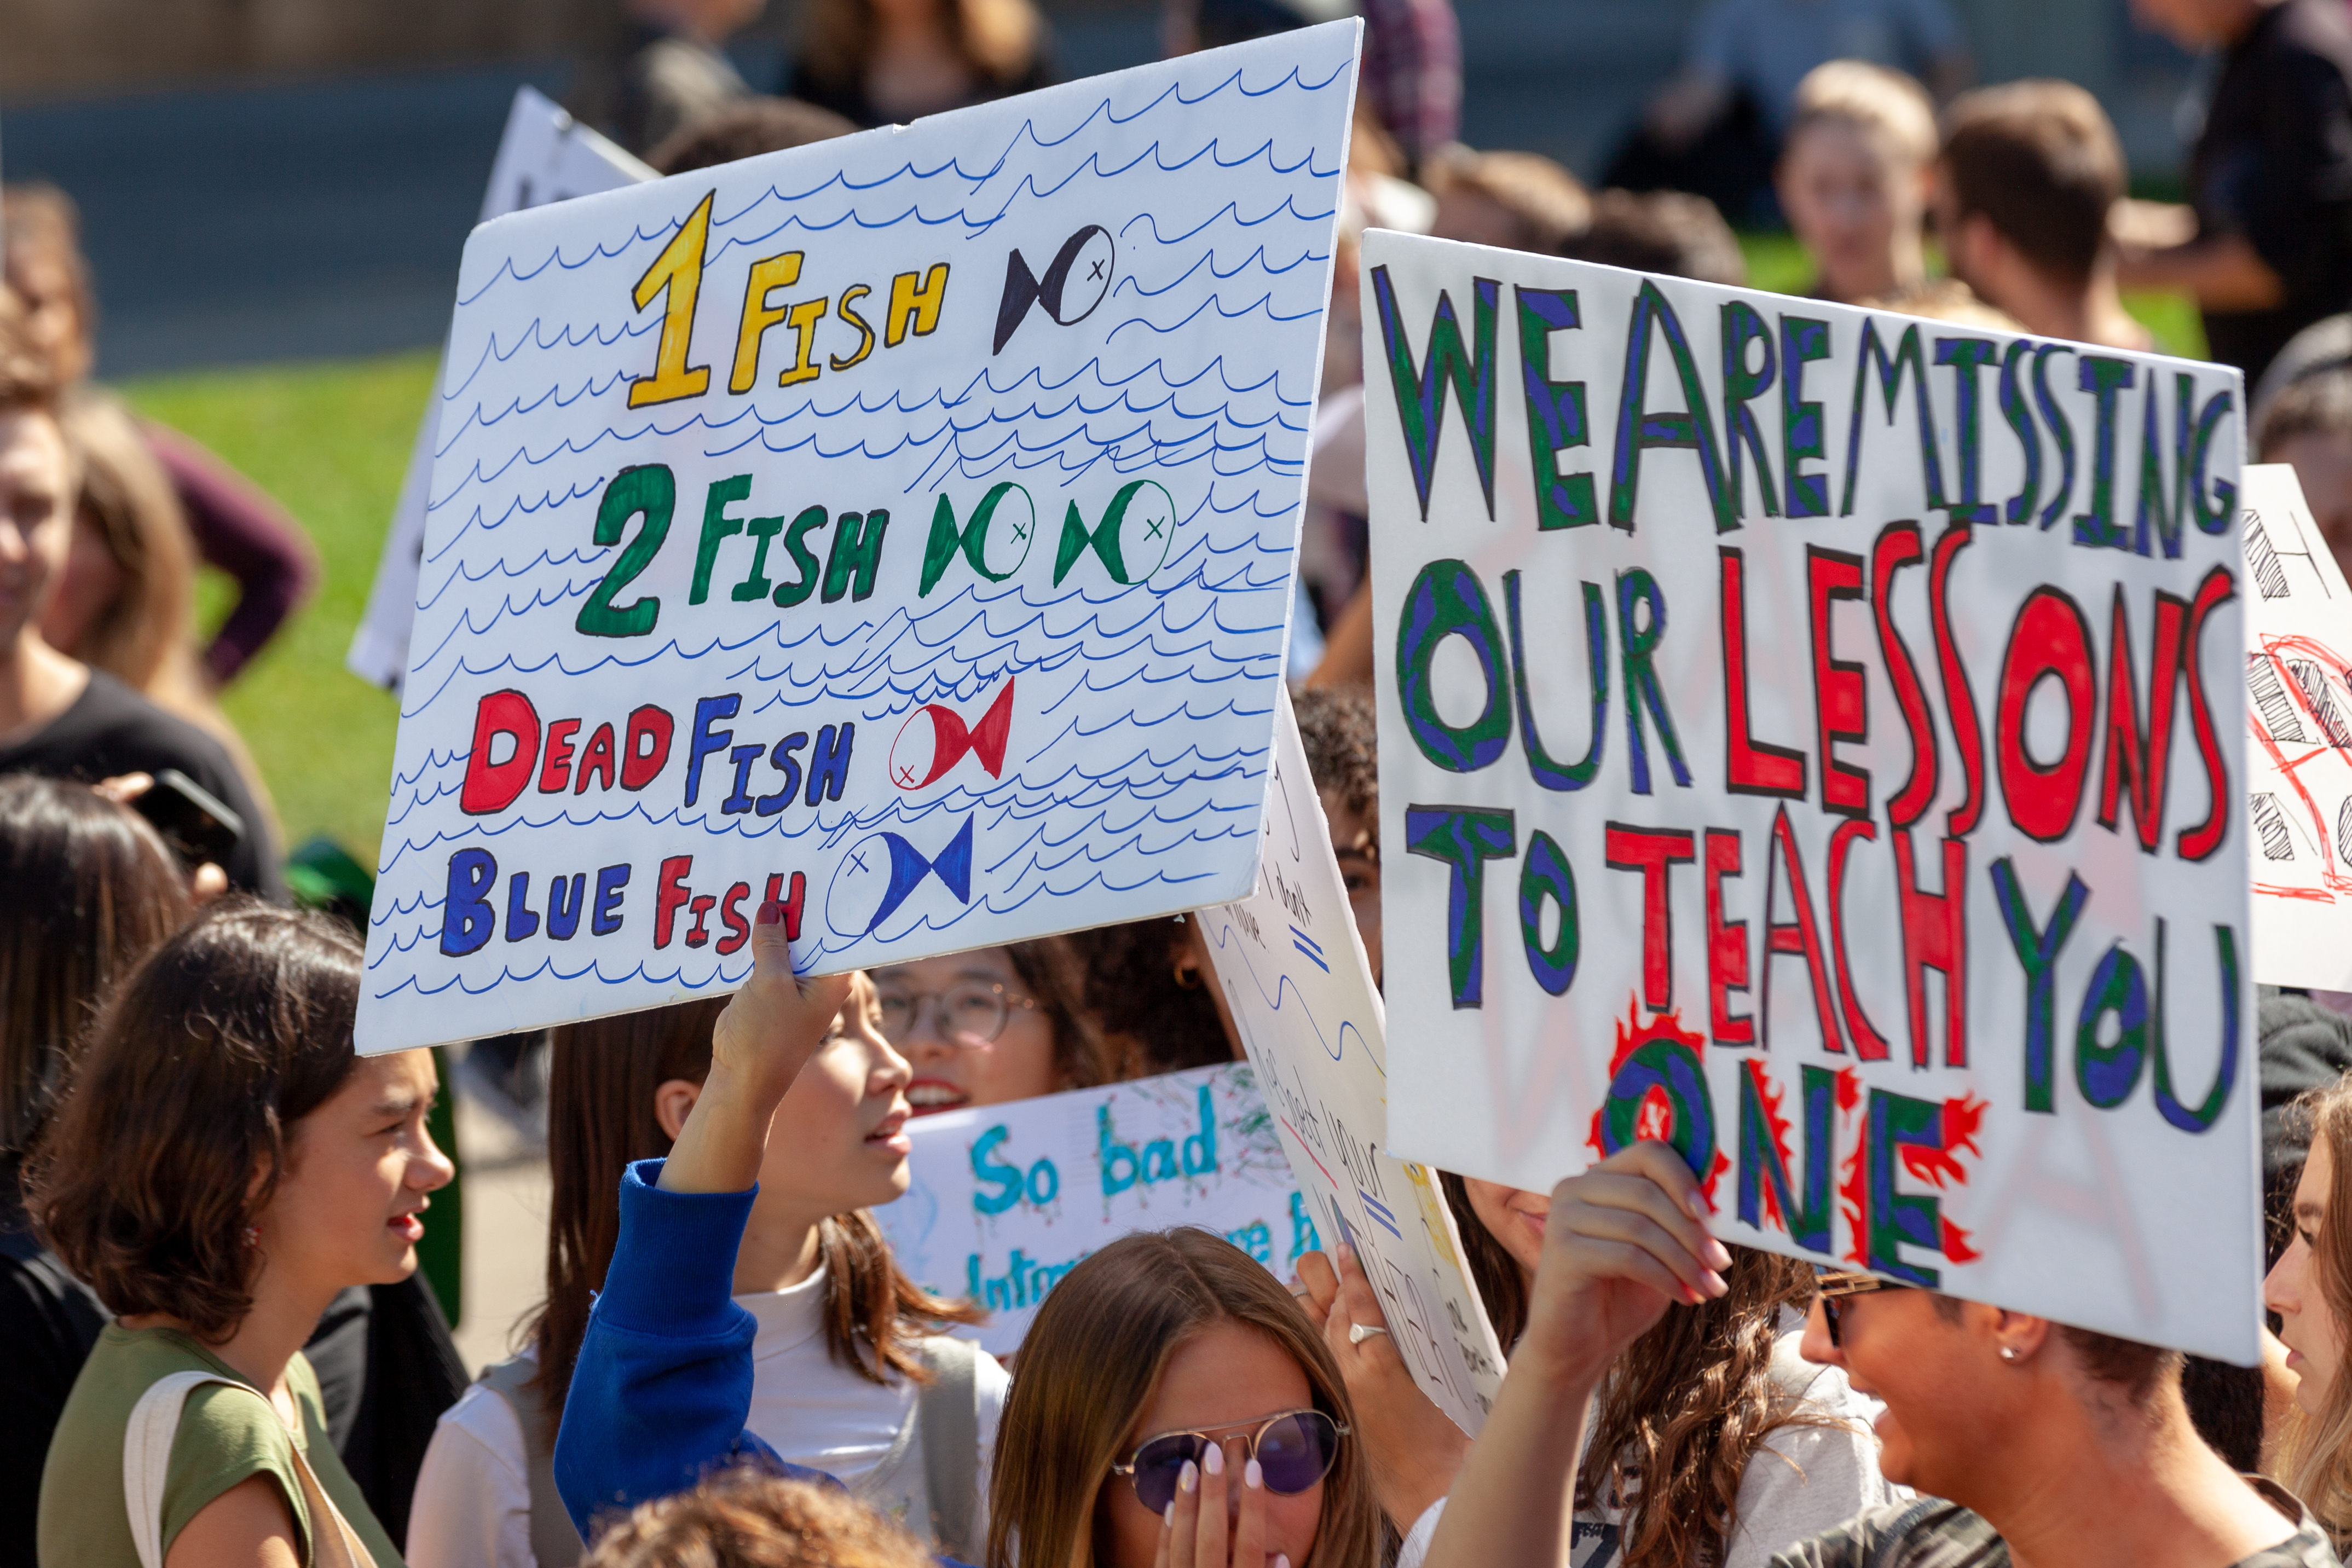 1 FISH
2 FISH
DEAD FISH
BLUE FISH
WE ARE MISSING
OUR LESSONS
TO TEACH YOU
ONE
So bad
I don't